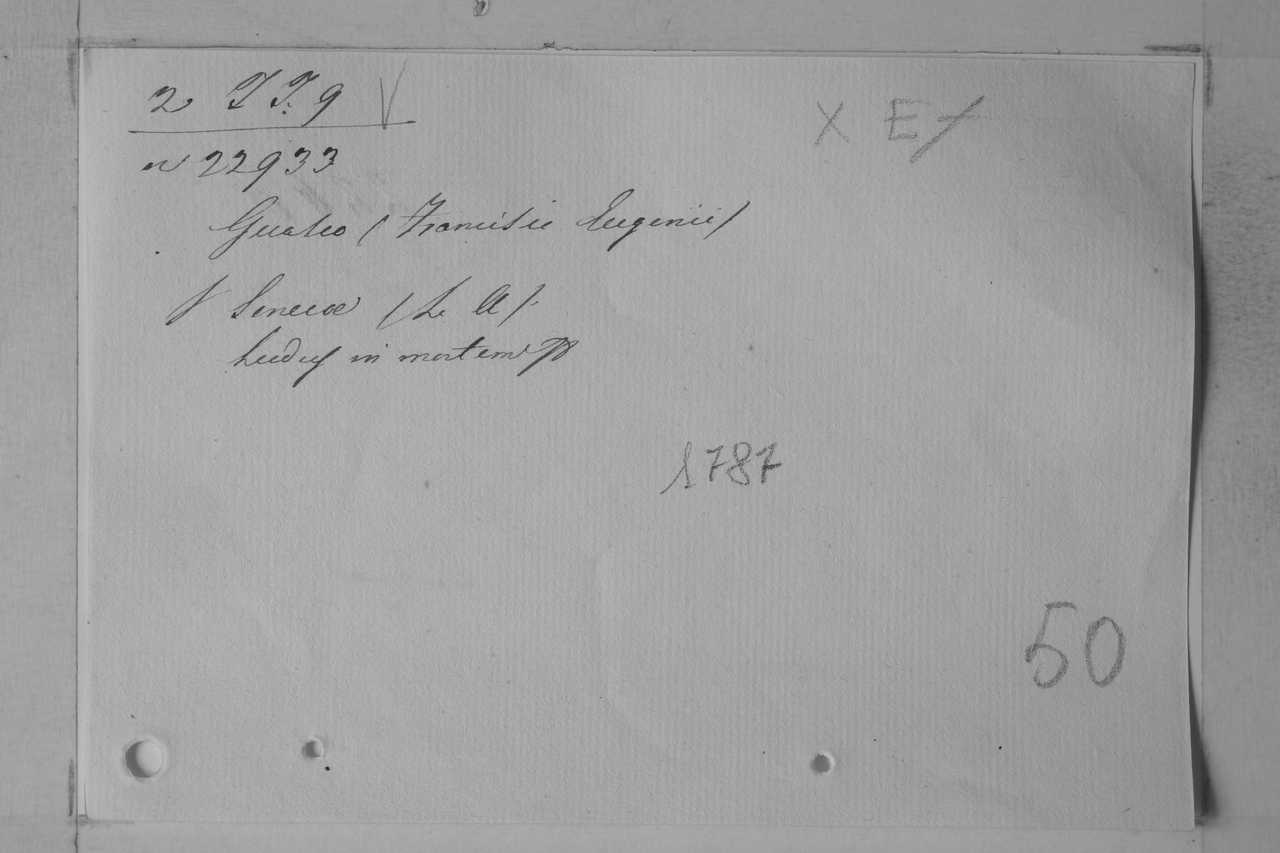 2 T T. 9 V
X E
n 22933
Guasco (Francisci Eugenii)
Senecæ (L. A.)
Ludus in mortem
1787
50